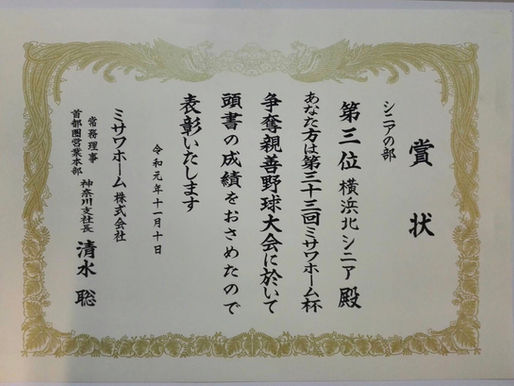 賞状
シニアの部
第三位 横浜北シニア 殿
あなた方は第三十三回ミサワホーム杯
争奪親善野球大会に於いて
頭書の成績をおさめたので
表彰いたします
令和元年十一月十日
ミサワホーム株式会社
常務理事
首都圏営業本部 神奈川支社長 清水 聡